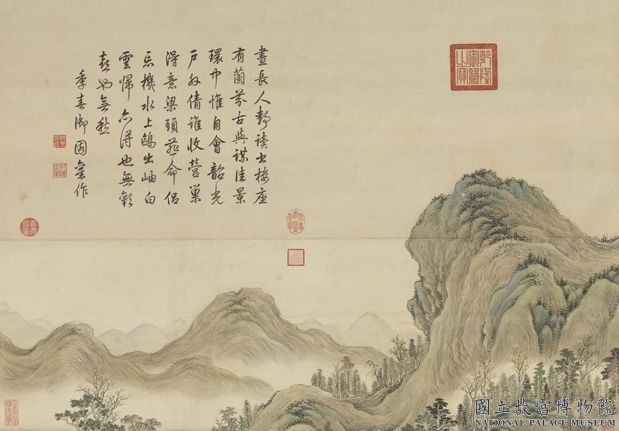 晝長人靜讀書樓座
有蘭芬古與謀佳景
環中惟自會韶光
戶外倩誰收營巢
得意梁頭燕命侶
忘機水上鷗出岫白
雲歸亦得也無歡
喜也無愁
季春御園畫作
國立故宮博物院
NATIONAL PALACE MUSEUM